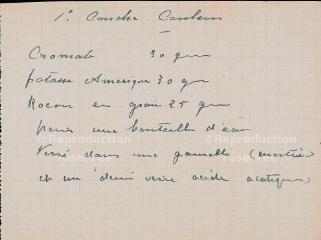 1º Couche Couleur
Cromate 30 gr
potasse Amerique 30 gr
Rocou en grain 25 gr
pour une bouteille d'eau
Versé dans une gamelle (moitié)
et un demi verre acide acetique
Reproduction
Reproduction